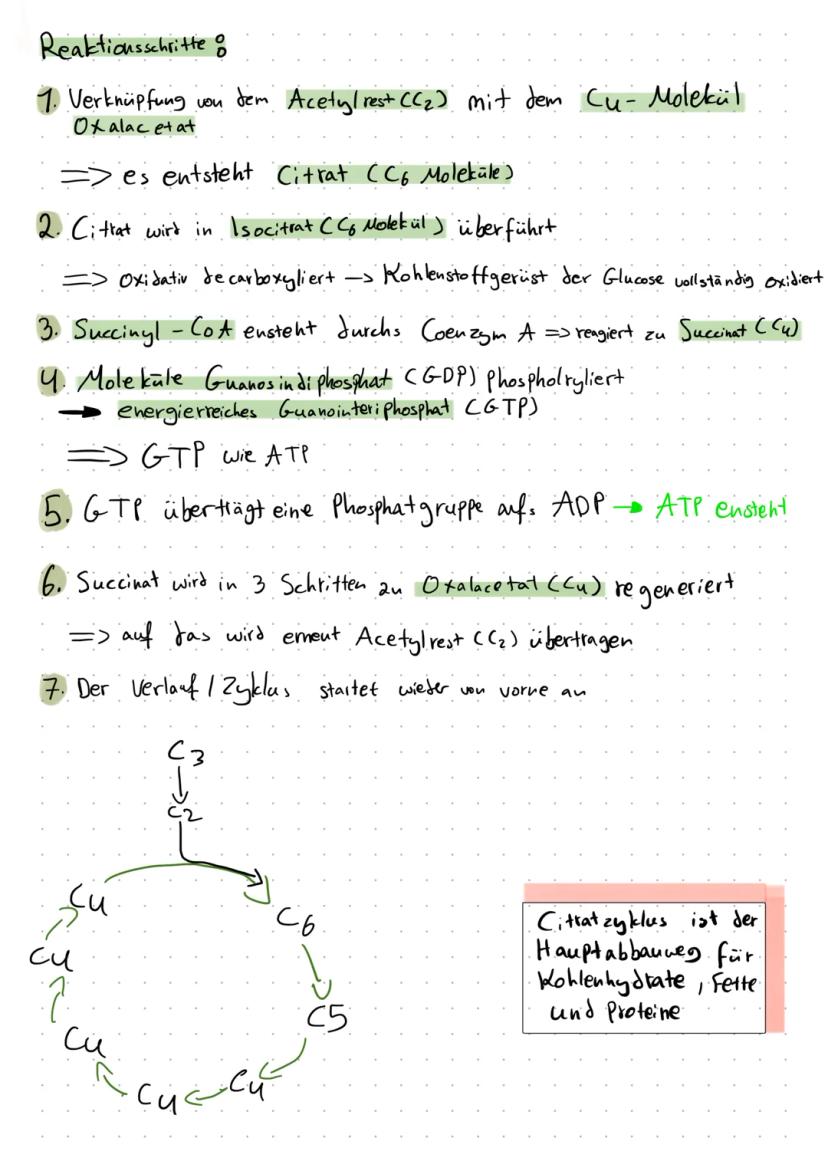 Reaktionsschritte:
1. Verknüpfung von dem Acetylrest (C2) mit dem C4-Molekül
Oxalacetat
=> es entsteht Citrat (C6 Moleküle)
2. Citrat wird in Isocitrat (C6 Molekül) überführt
=> Oxidativ decarboxyliert -> Kohlenstoffgerüst der Glucose vollständig oxidiert
3. Succinyl-CoA ensteht durchs Coenzym A => reagiert zu Succinat (C4)
4. Moleküle Guanosindiphosphat (GDP) phospholryliert
→ energierreiches Guanointeriphosphat (GTP)
=> GTP wie ATP
5. GTP überträgt eine Phosphatgruppe aufs ADP → ATP ensteht
6. Succinat wird in 3 Schritten zu Oxalacetat (C4) regeneriert
=> auf das wird erneut Acetylrest (C2) übertragen
7. Der Verlauf / Zyklus startet wieder von vorne an
C3
C2
C4
C6
C4
C5
C4
C4
C4
Citratzyklus ist der
Hauptabbauweg für
Kohlenhydrate, Fette
und Proteine